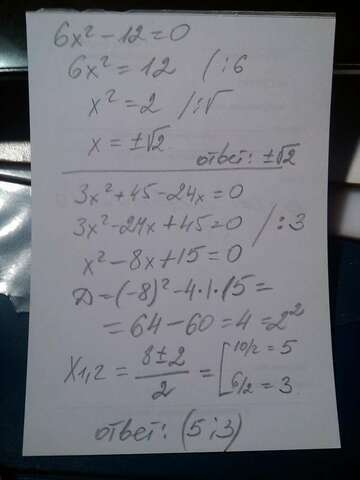 6x² - 12 = 0
6x² = 12 /:6
x² = 2 /:√
x = ±√2
ответ: ±√2
3x² + 45 - 24x = 0
3x² - 24x + 45 = 0 /:3
x² - 8x + 15 = 0
Д = (-8)² - 4·1·15 =
= 64 - 60 = 4 = 2²
X1,2 = (8±2)/2 = [10/2 = 5
6/2 = 3
ответ: (5;3)